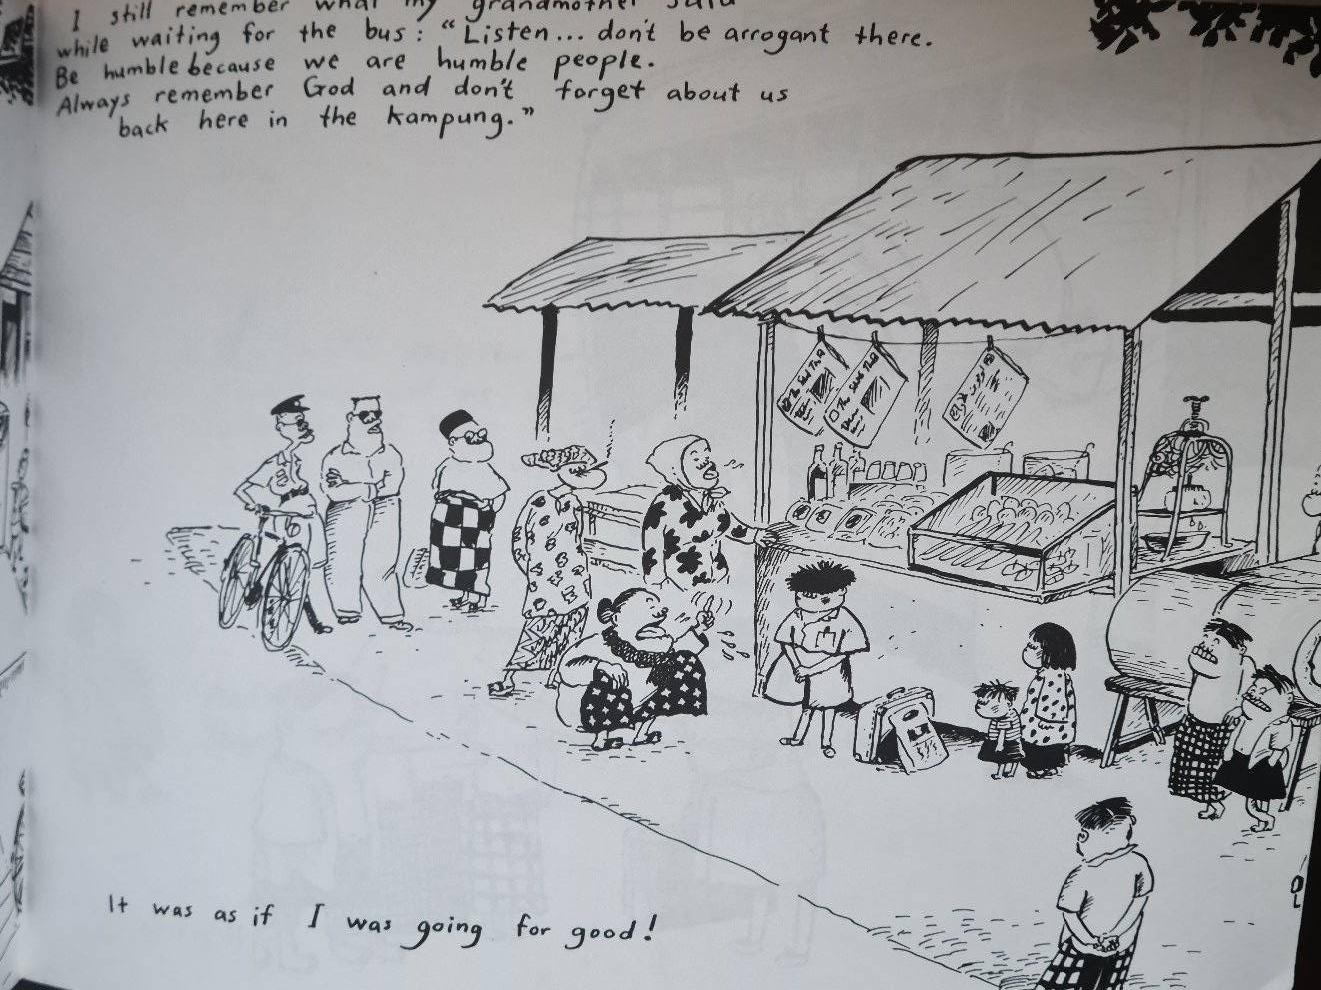 I still remember what my grandmother said
while waiting for the bus: "Listen... don't be arrogant there.
Be humble because we are humble people.
Always remember God and don't forget about us
back here in the kampung."
It was as if I was going for good!